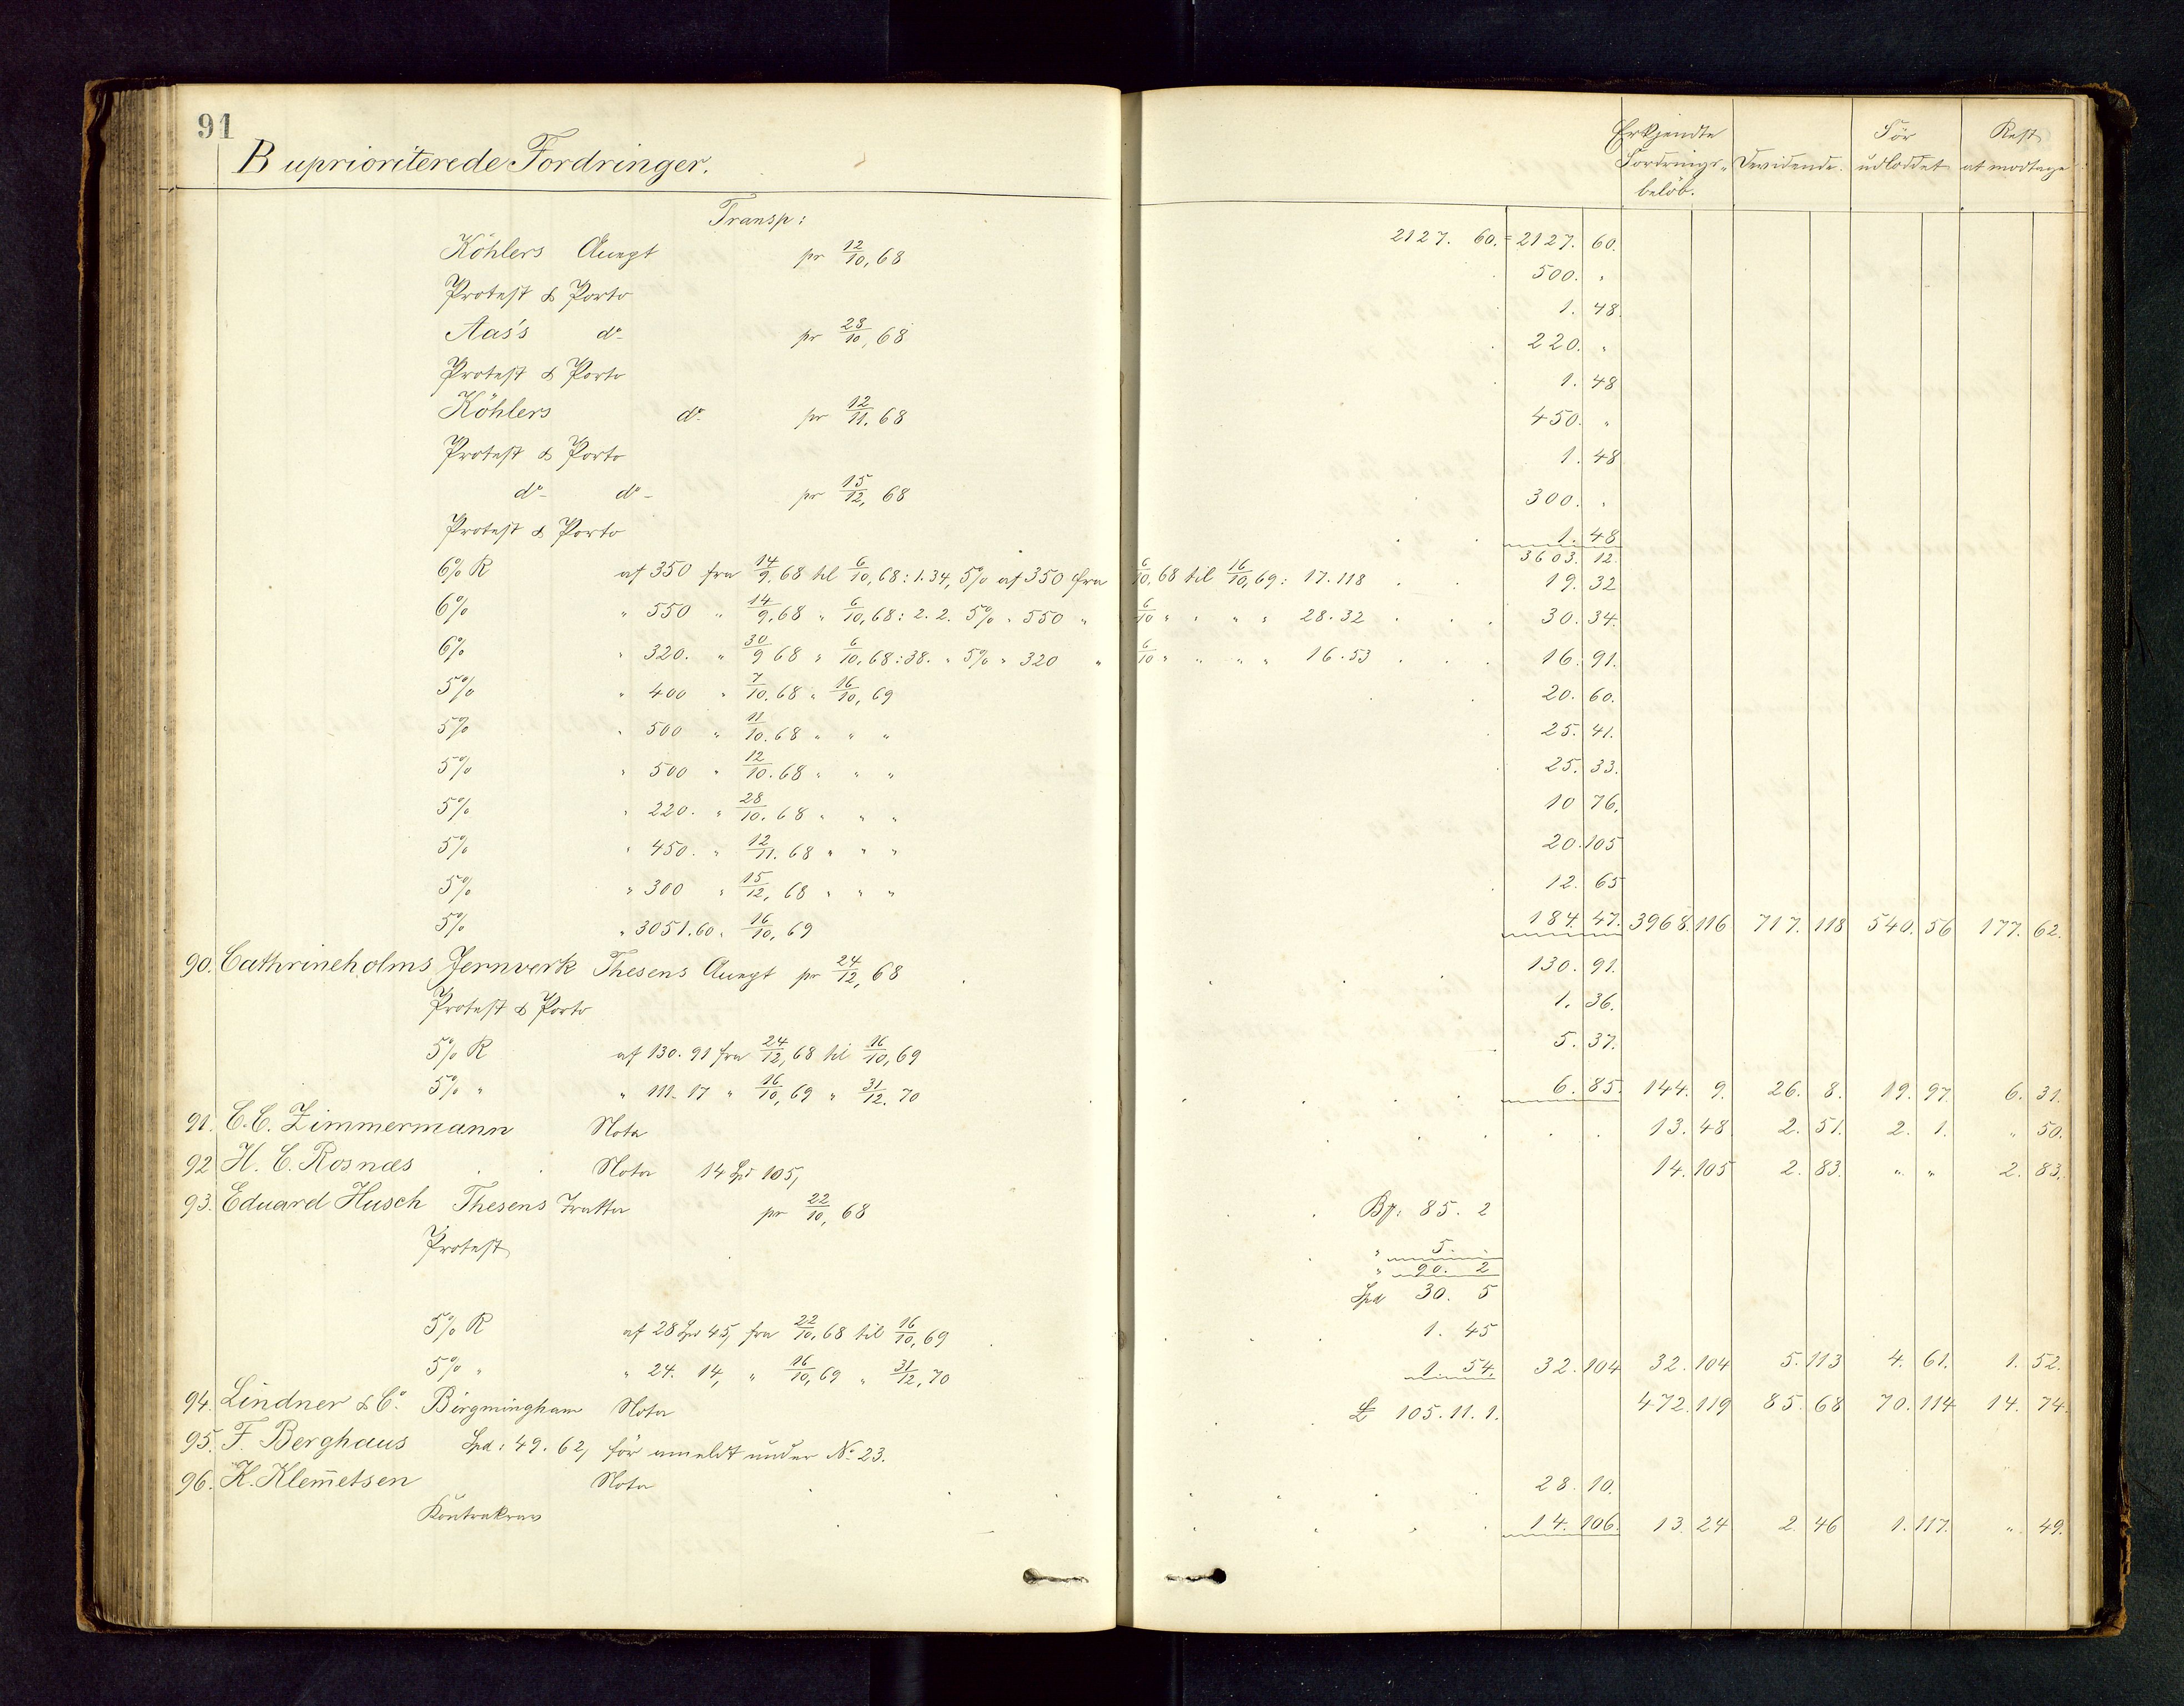 91
B upprioriterede Fordringer.
Erkjendte Fordrings- belöb. Dividende. Før udloddet Rest at modtage
Transp: 2127. 60. = 2127. 60.
Köhlers Accept pr 12/10, 68 500. "
Protest & Porto 1. 48.
Aas's do- pr 28/10, 68 220. "
Protest & Porto 1. 48
Köhlers do- pr 12/11. 68 450. "
Protest & Porto 1. 48
do- do- pr 15/12, 68 300. "
Protest & Porto 1. 48
3603. 12.
6% R af 350 fra 14/9. 68 til 6/10, 68: 1.34, 5% af 350 fra 6/10, 68 til 16/10, 69: 17.118 19. 32
6% " 550 " 14/9. 68 " 6/10, 68: 2. 2. 5% " 550 " 6/10 " " " : 28.32 30. 34.
6% " 320. " 30/9 68 " 6/10, 68: 38. " 5% " 320 " 6/10 " " " " 16.53 16. 91.
5% " 400 " 7/10. 68 " 16/10, 69 20. 60.
5% " 500 " 11/10. 68 " " " 25. 41.
5% " 500 " 12/10. 68 " " " 25. 33.
5% " 220. " 28/10. 68 " " " 10 76.
5% " 450. " 12/11. 68 " " " 20. 105
5% " 300 " 15/12, 68 " " " 12. 65
5% " 3051.60. 16/10, 69 184. 47. 3968. 116 717. 118 540. 56 177. 62.
90. Cathrineholms Jernverk Thesens Accept pr 24/12, 68 130. 91.
Protest & Porto 1. 36.
5% R af 130. 91 fra 24/12, 68 til 16/10, 69 5. 37.
5% " " 111. 17 " 16/10, 69 " 31/12. 70 6. 85. 144. 9. 26. 8. 19. 97. 6. 31.
91. C. C. Zimmermann Nota 13. 48 2. 51. 2. 1. " 50.
92 H. C. Rosnæs Nota 14 Spd 105, 14. 105 2. 83. " " 2. 83.
93. Eduard Husch Thesens Tratta pr 22/10, 68 85. 2
Protest " 5. "
" 90. 2
Spd 30. 5
5% R af 28 Spd 45, fra 22/10, 68 til 16/10, 69 1. 45
5% " " 24. 14, " 16/10, 69 " 31/12, 70 1. 54. 32. 104 32. 104 5. 113 4. 61. 1. 52.
94. Lindner & Co. Birgmingham Nota £ 105. 11. 1. 472. 119 85. 68 70. 114 14. 74.
95. F. Berghaus Spd: 49. 62, før anmeldt under No. 23.
96. K. Klemetsen Nota 28. 10.
Kontrakrav 14. 106. 13. 24 2. 46 1. 117. " 49.